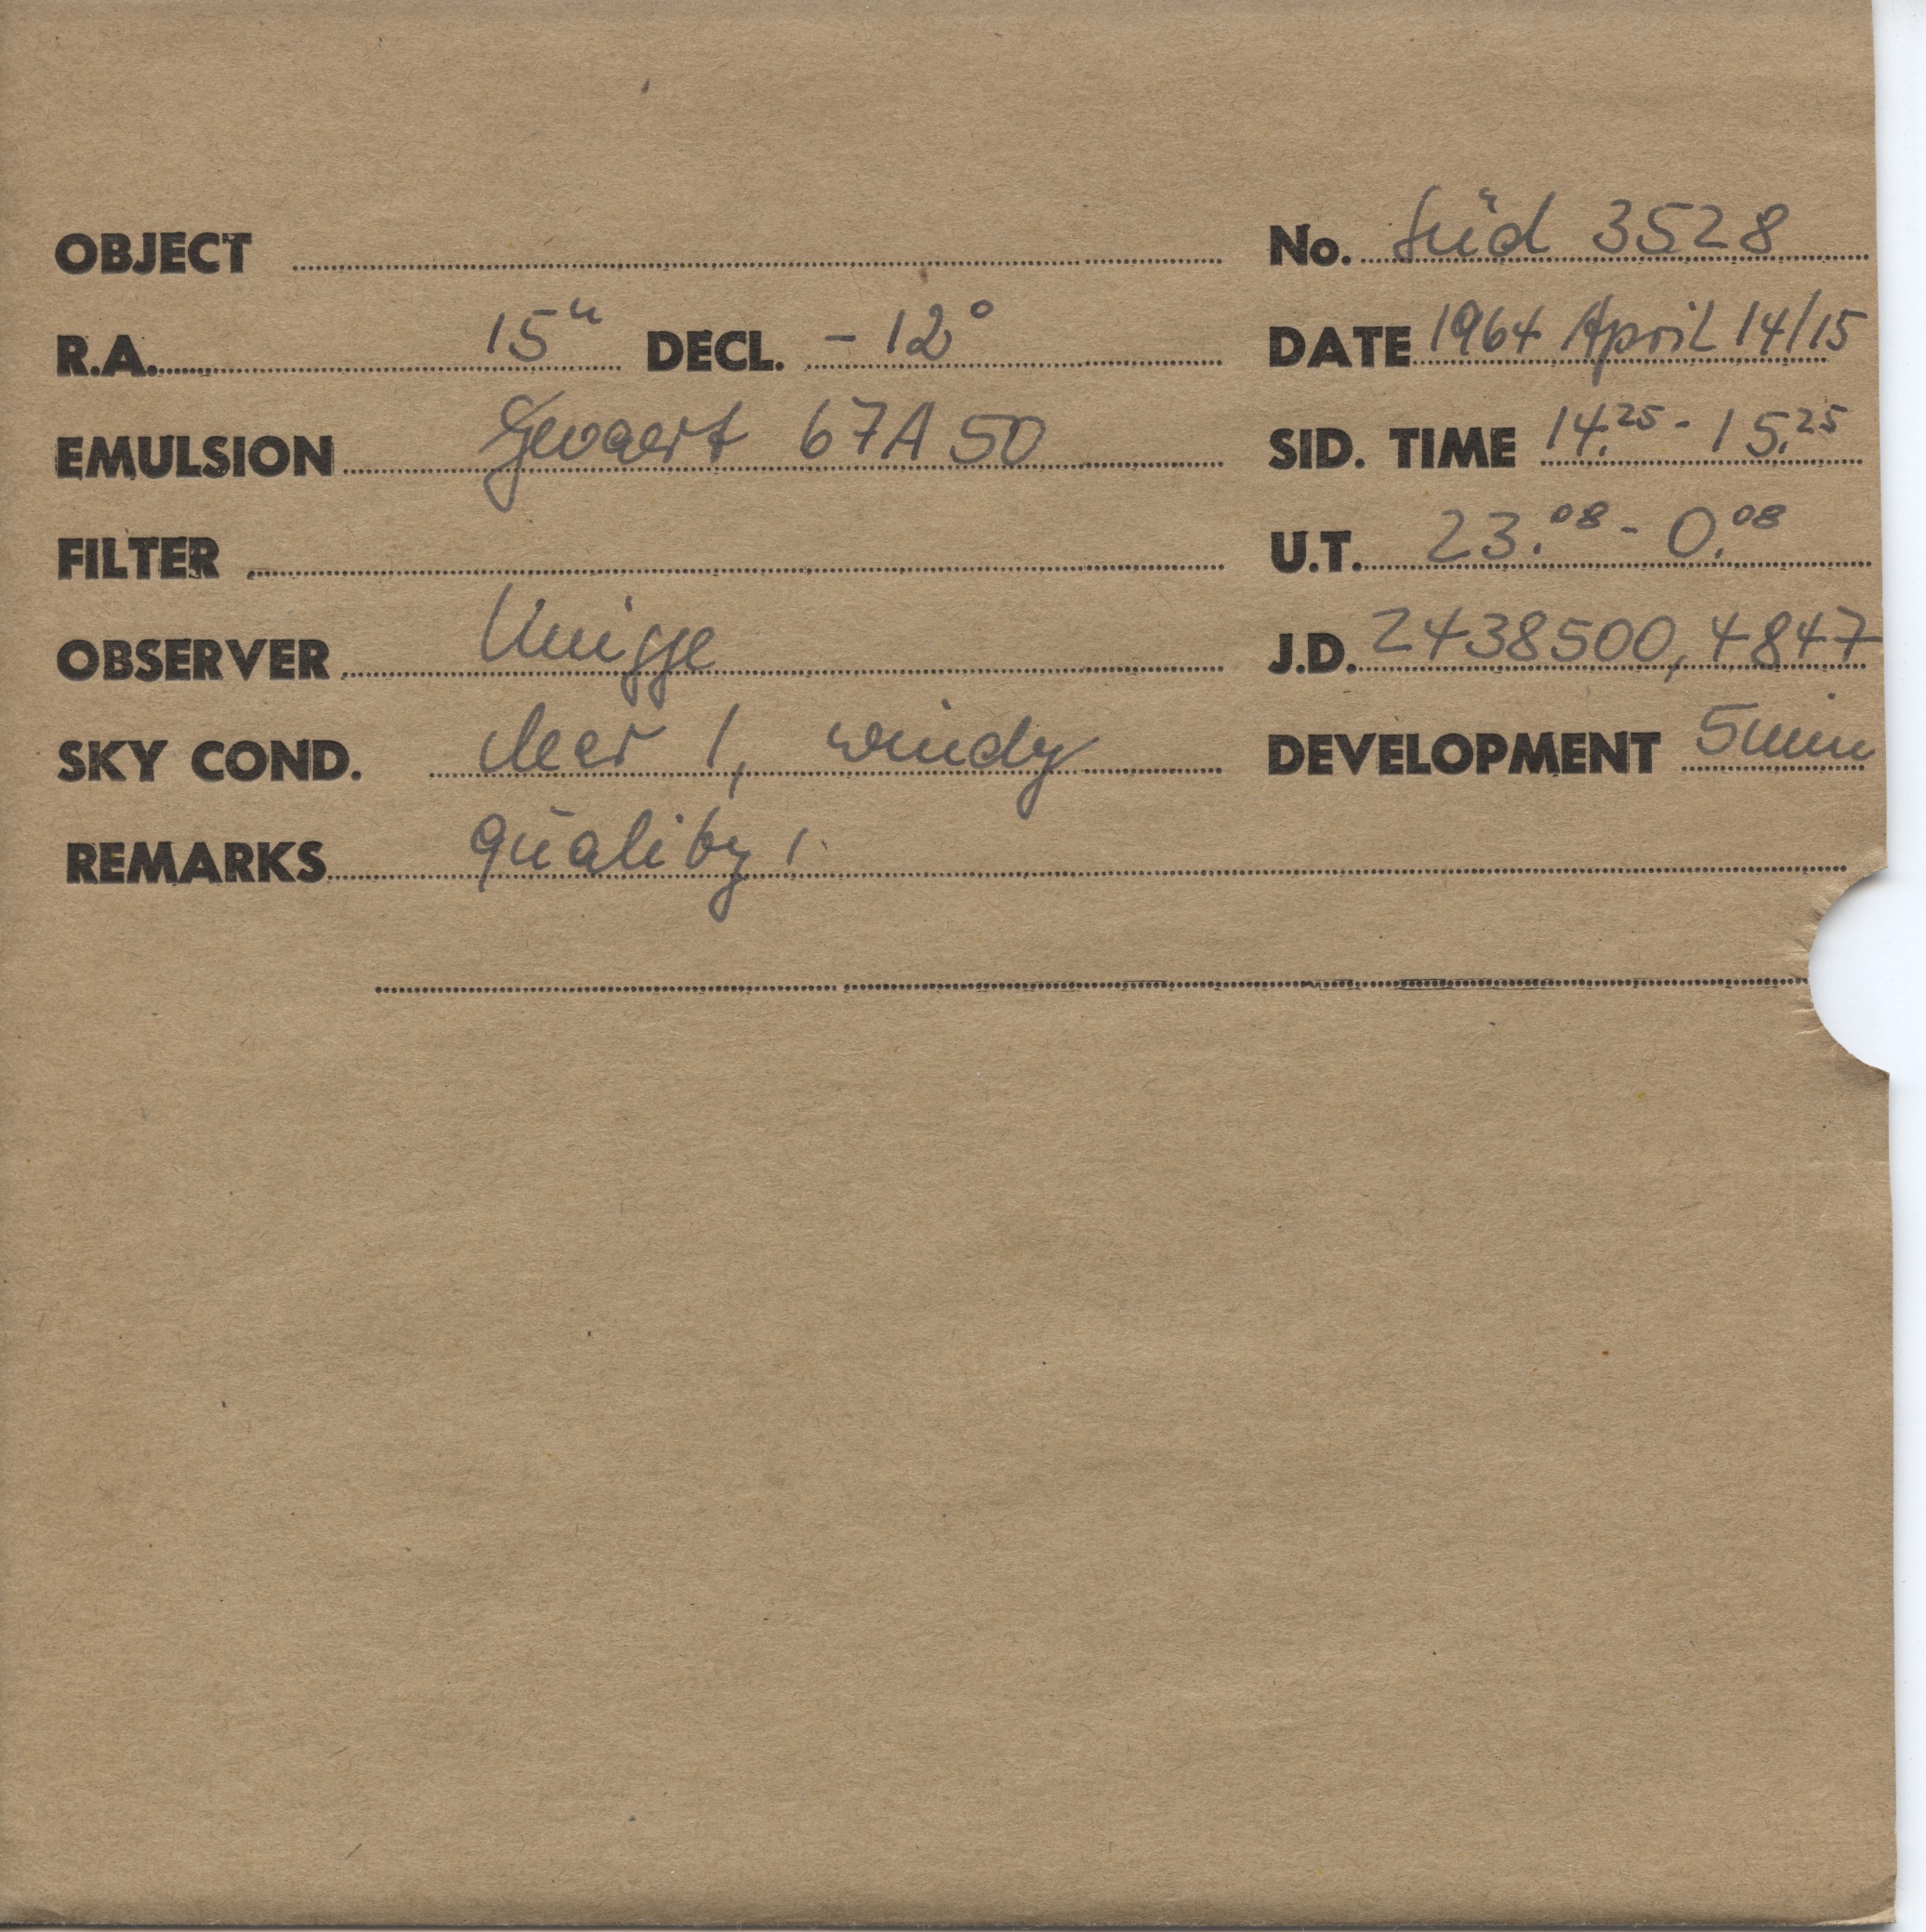 OBJECT No. Süd 3528
R.A. 15ʰ DECL. - 12° DATE 1964 April 14/15
EMULSION Gevaert 67A50 SID. TIME 14.25 - 15.25
FILTER U.T. 23.08 - 0.08
OBSERVER Knigge J.D. 2438500,4847
SKY COND. clear 1, windy DEVELOPMENT 5min
REMARKS quality 1